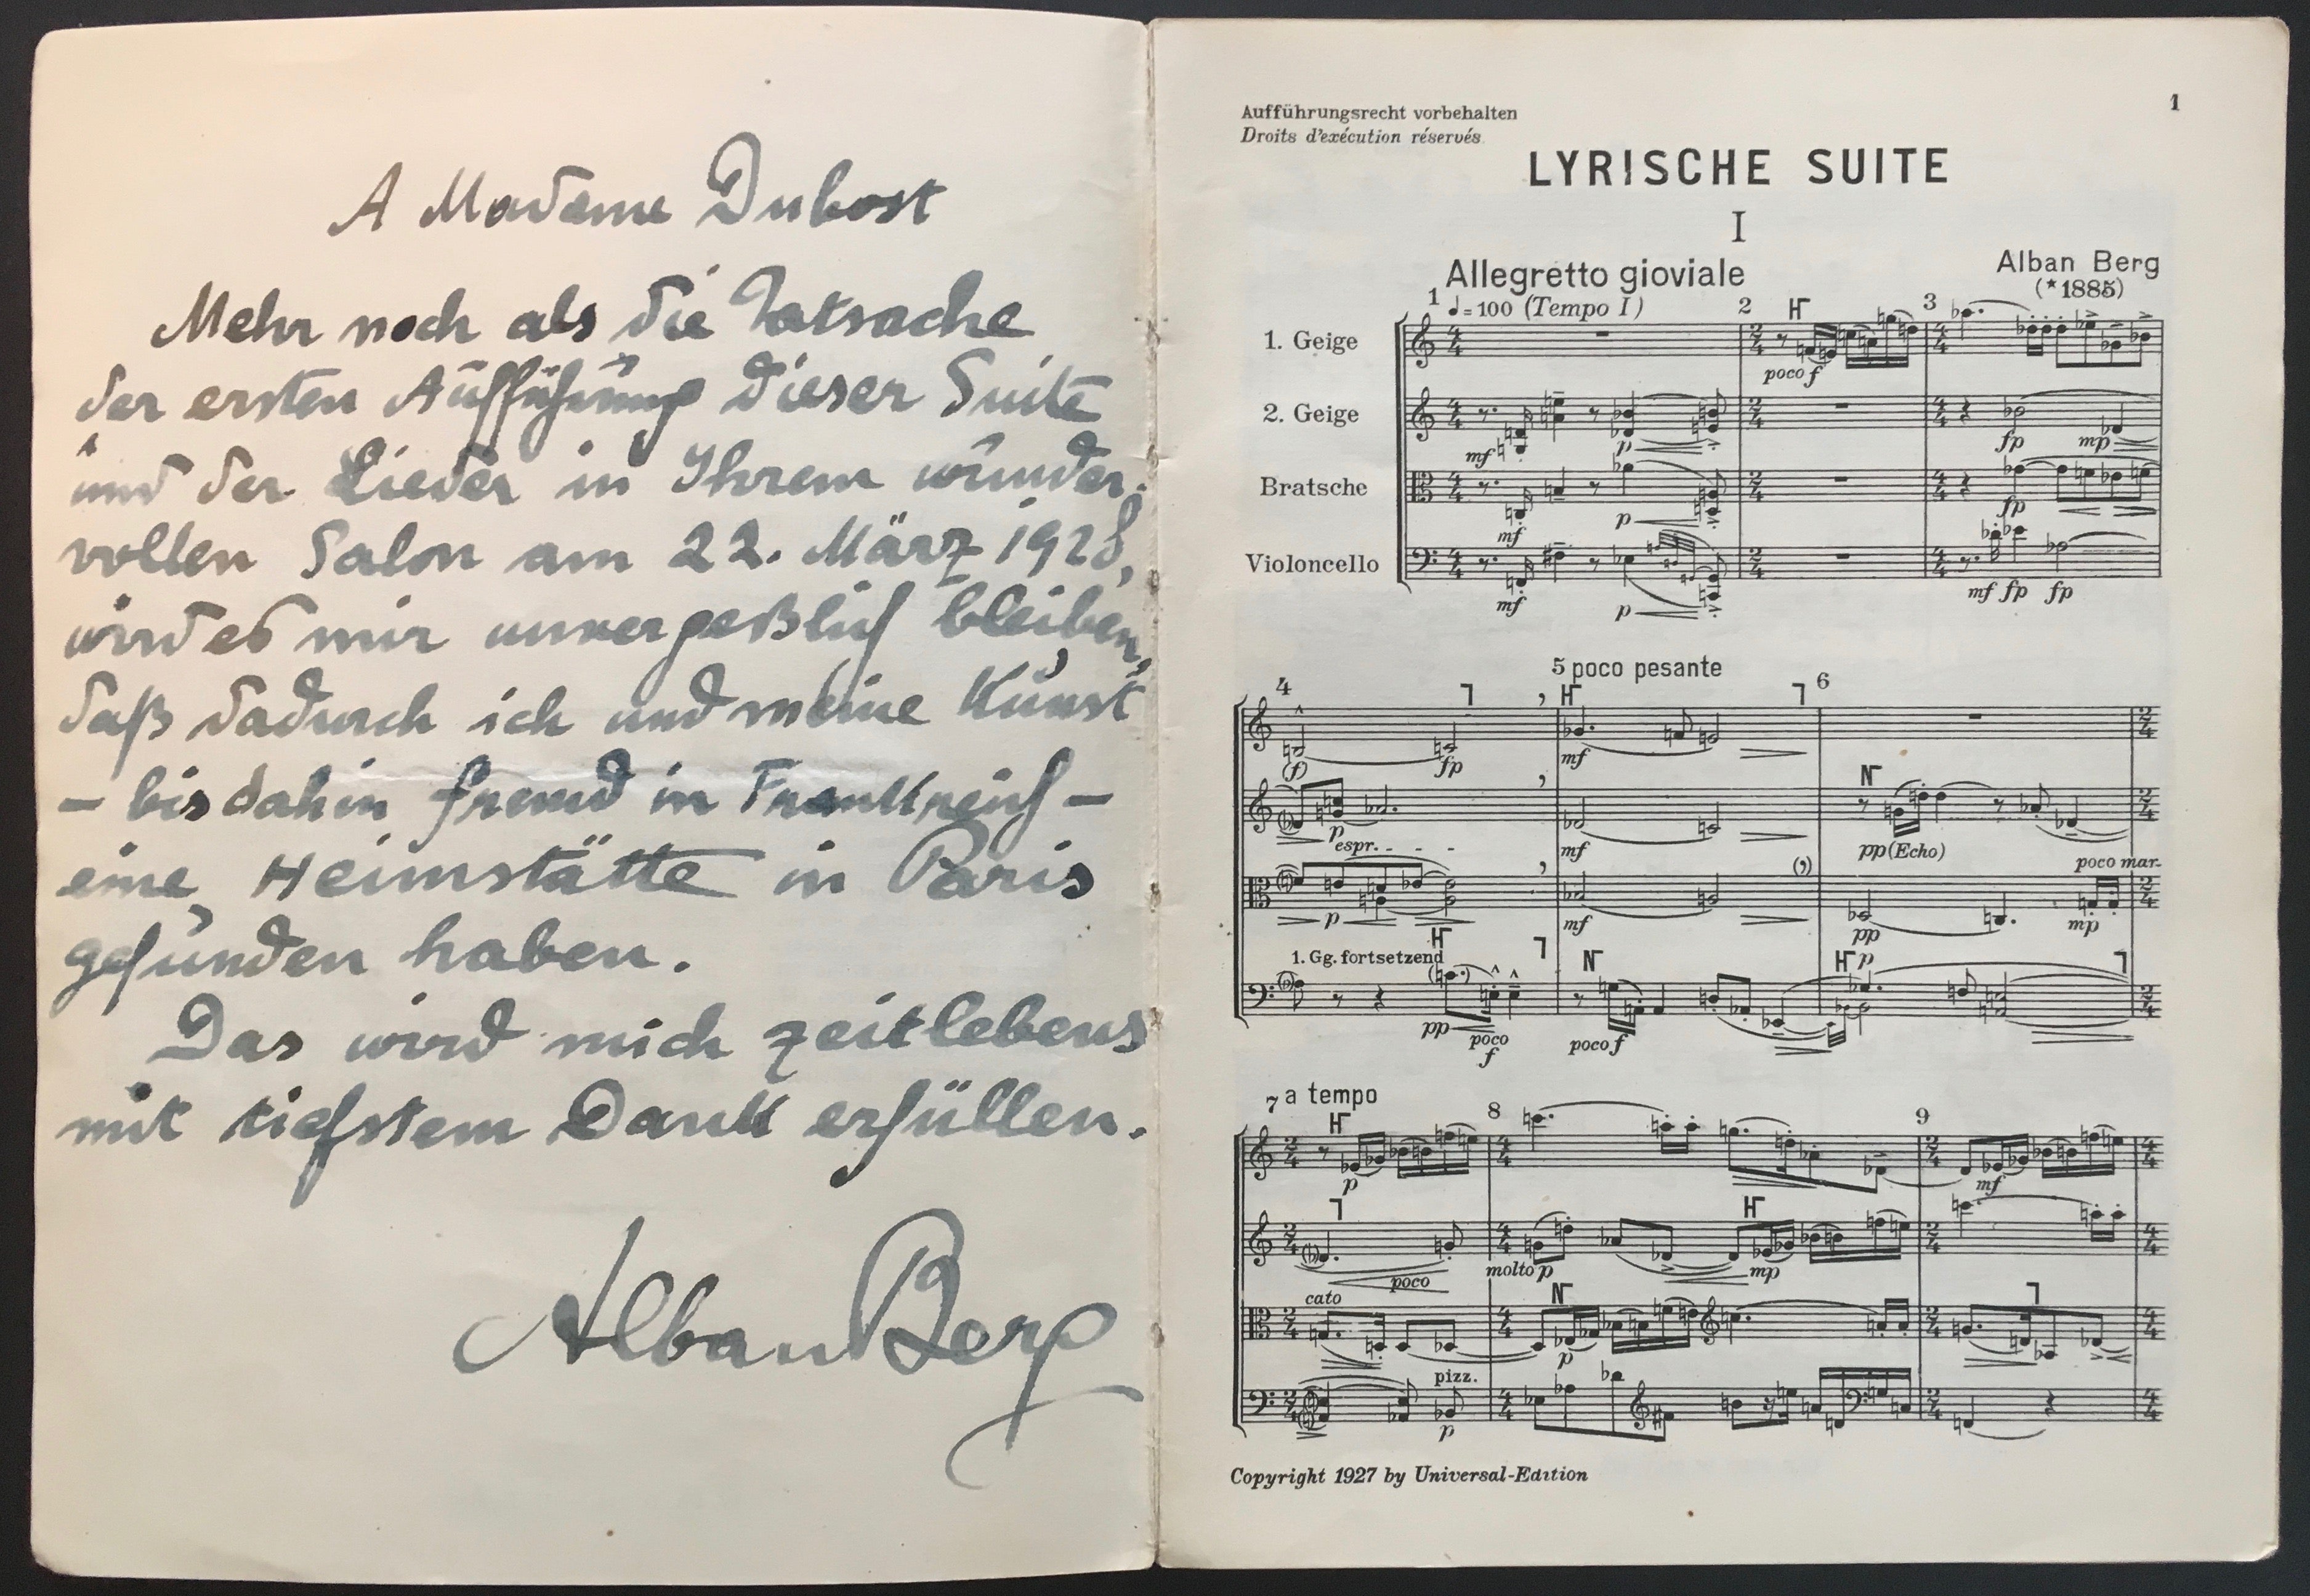 A Madame Dubost
Mehr noch als die Tatsache
der ersten Aufführung dieser Suite
und der Lieder in Ihrem wunder-
vollen Salon am 22. März 1928,
wird es mir unvergeßlich bleiben,
daß dadurch ich und meine Kunst
– bis dahin fremd in Frankreich –
eine Heimstätte in Paris
gefunden haben.
Das wird mich zeitlebens
mit tiefstem Dank erfüllen.
Alban Berg
1
Aufführungsrecht vorbehalten
Droits d'exécution réservés
LYRISCHE SUITE
I
Allegretto gioviale
Alban Berg
(*1885)
1 ♩=100 (Tempo I) 2 H 3
1. Geige
poco f
2. Geige
mf p fp mp
Bratsche
mf p fp
Violoncello
mf p mf fp fp
4 5 poco pesante 6
H
(f) fp mf
N
p espr. mf pp (Echo)
poco mar-
p mf pp mp
1. Gg. fortsetzend H N H p
pp poco f poco f
7 a tempo 8 9
H
p mf
H
poco molto p mp
cato N
p
pizz.
p
Copyright 1927 by Universal-Edition